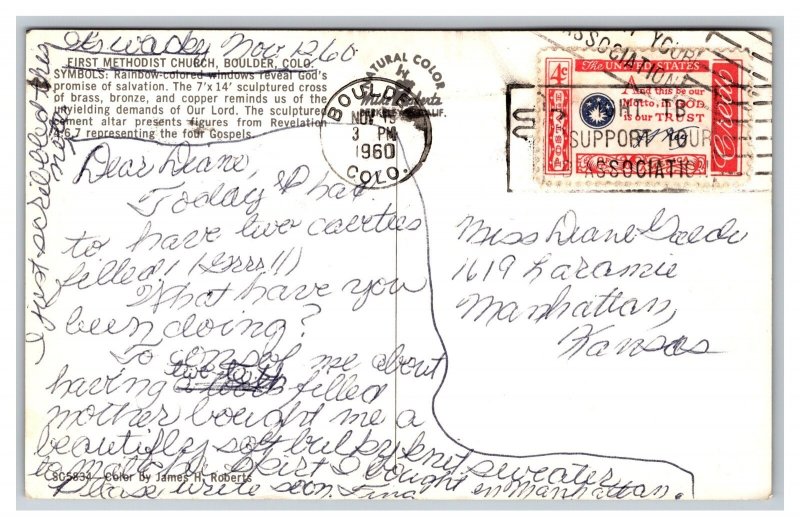 It's wacky Nov 12 60
FIRST METHODIST CHURCH, BOULDER, COLO.
SYMBOLS: Rainbow-colored windows reveal God's
promise of salvation. The 7'x 14' sculptured cross
of brass, bronze, and copper reminds us of the
unyielding demands of Our Lord. The sculptured
cement altar presents figures from Revelation
4:6,7 representing the four Gospels.
I just scribbled this
Dear Deane,
Today I had
to have two cavities
filled! (Grrrr!!)
What have you
been doing?
To consol me about
having two teeth filled
mother bought me a
beautiful soft bulky knit sweater
to match a skirt I bought in Manhattan.
Please write soon.
SC5834 Color by James H. Roberts
NATURAL COLOR
BERKELEY, CALIF.
BOULDER
NOV 13
3 PM
1960
COLO.
YOUR
ASSOCIATION
SUPPORT YOUR
ASSOCIATI
4¢
POSTAGE
The UNITED STATES
And this be our
Motto, in GOD
is our TRUST
Miss Deane Gaede
1619 Laramie
Manhattan,
Kansas